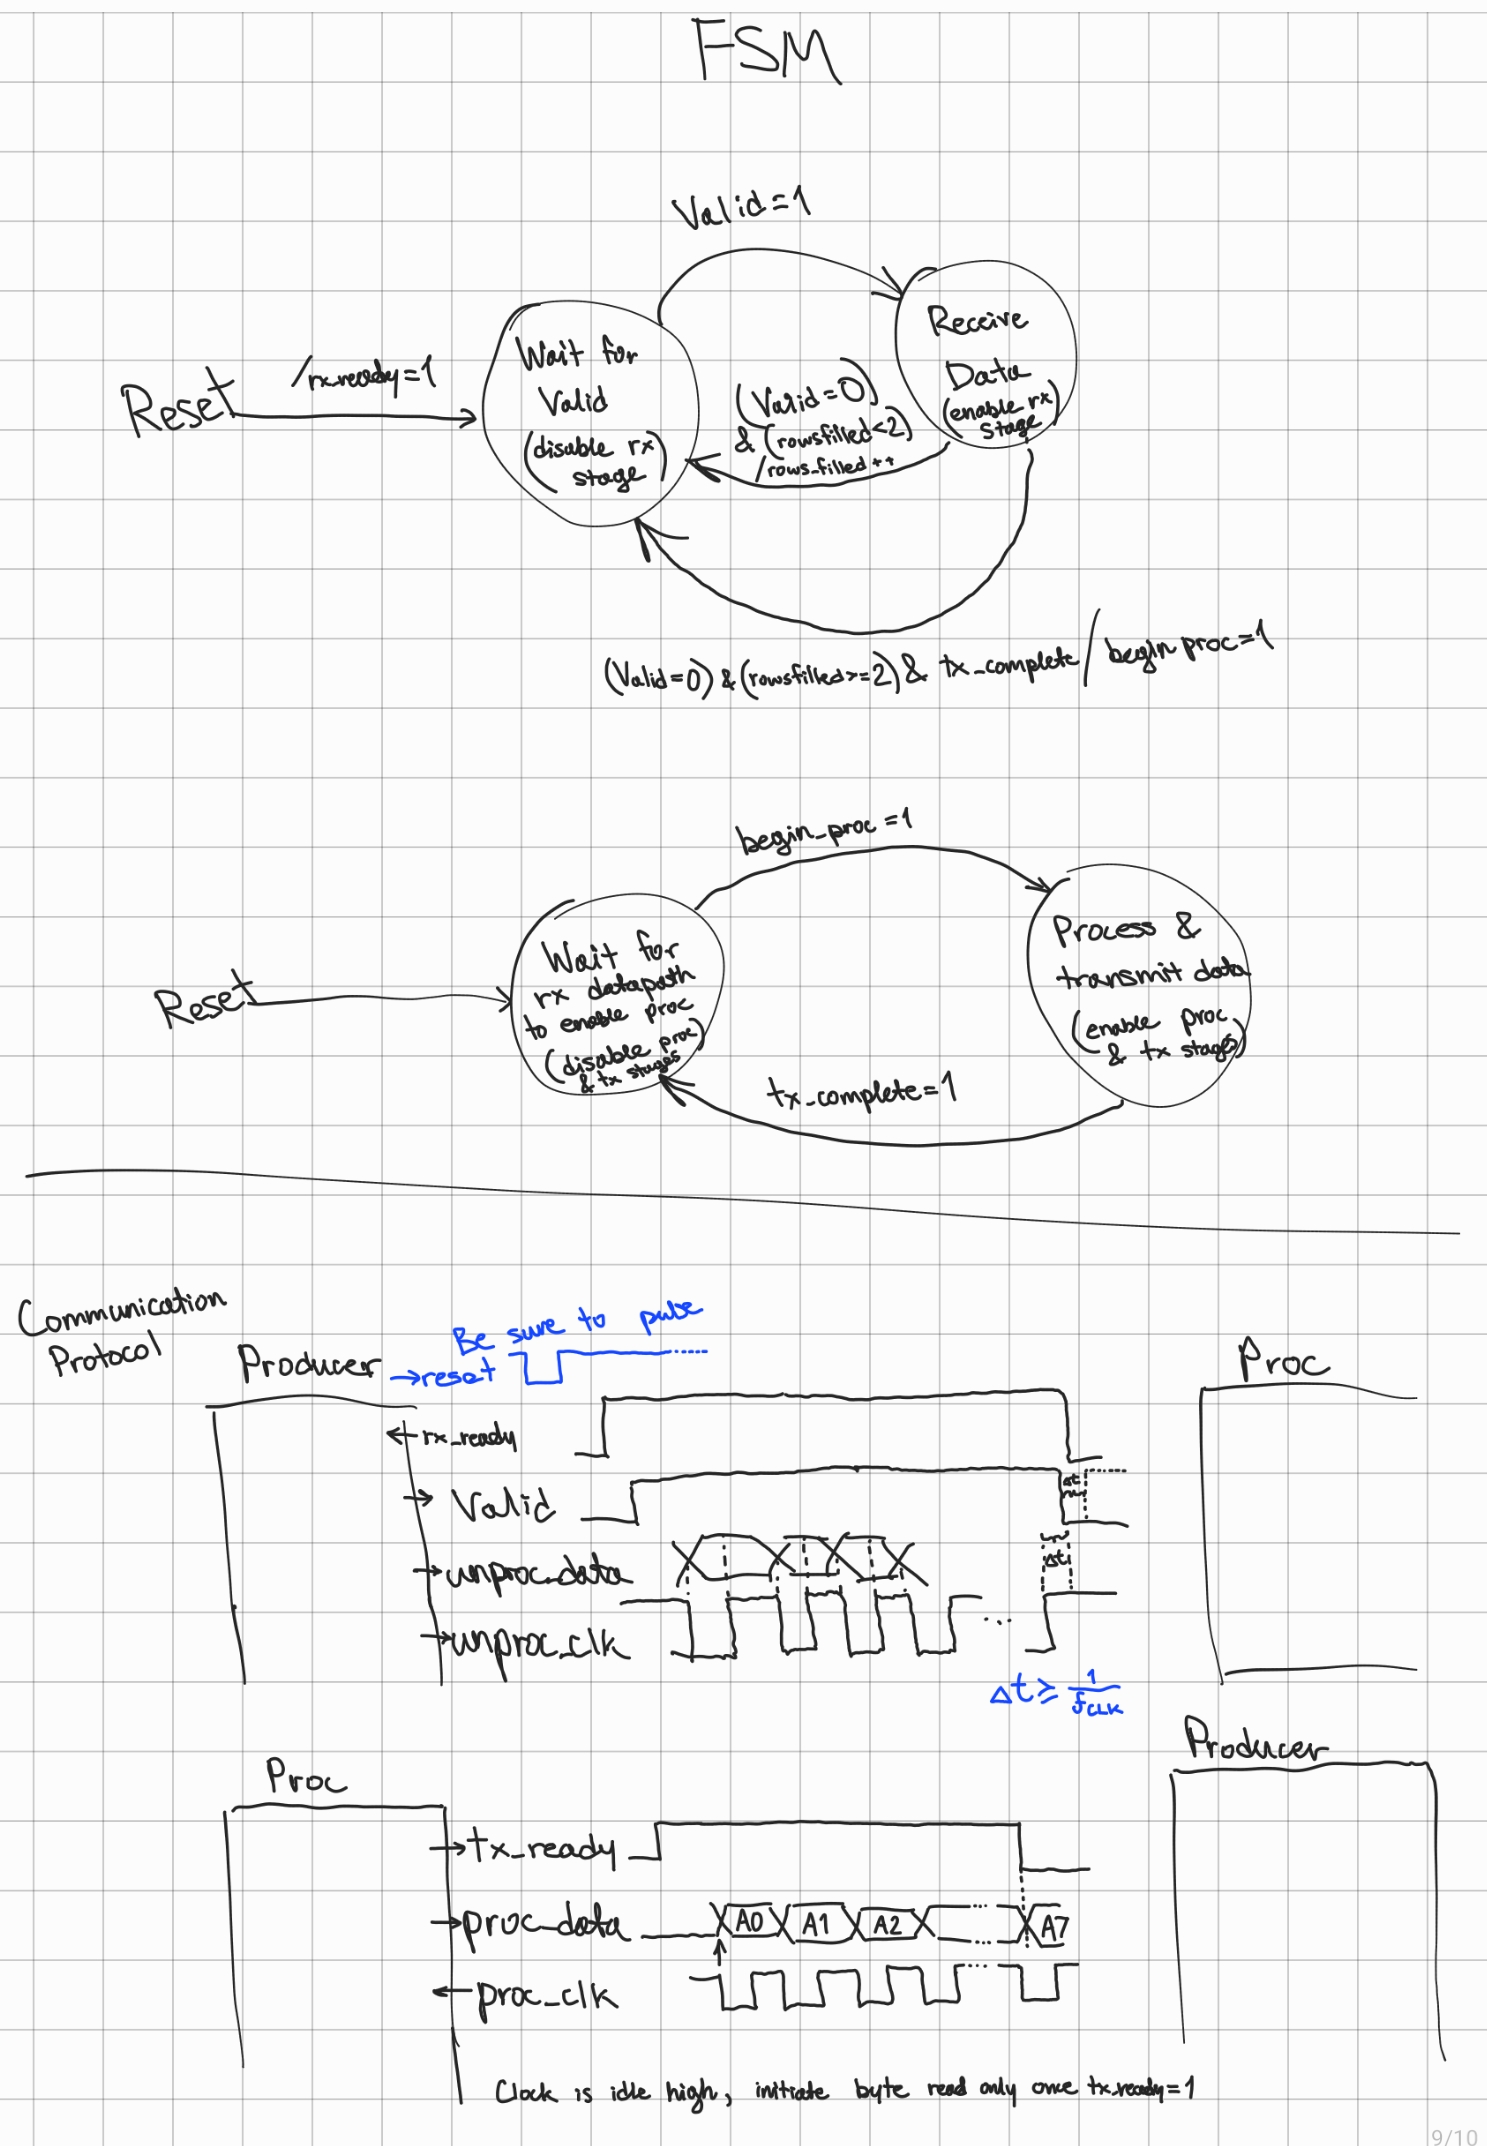 FSM
Valid=1
Reset
/rx_ready=1
Wait for
Valid
(disable rx
stage)
Receive
Data
(enable rx
stage)
(Valid=0)
& (rowsfilled<2)
/rows_filled++
(Valid=0) & (rowsfilled>=2) & tx_complete / begin proc=1
begin_proc=1
Reset
Wait for
rx datapath
to enable proc
(disable proc
& tx stages)
Process &
transmit data
(enable proc
& tx stages)
tx_complete=1
Communication
Protocol
Producer
Be sure to pulse
→reset
Proc
←rx_ready
→ Valid
Δt
→unproc_data
Δt
→unproc_clk
Δt ≥ 1/fCLK
Proc
Producer
→tx_ready
→proc_data
A0 A1 A2 ... A7
←proc_clk
Clock is idle high, initiate byte read only once tx_ready=1
9/10